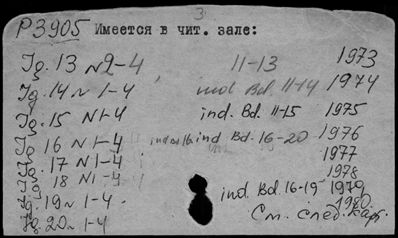 3
P3905 Имеется в чит. зале:
Jg. 13 № 2-4, 11-13 1973
Jg. 14 № 1-4 ind. Bd. 11-14 1974
Jg. 15 № 1-4 ind. Bd. 11-15 1975
Jg. 16 № 1-4 ind. Bd. 16-20 1976
Jg. 17 № 1-4 ; 1977
Jg. 18 № 1-4 1978
Jg. 19 № 1-4 ind. Bd. 16-19 1979
Jg. 20 № 1-4 1980
См. след. карт.